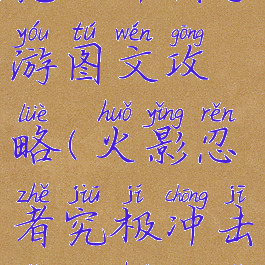 yóu tú wén gōng
游图文攻
lüè huǒ yǐng rěn
略(火影忍
zhě jiū jí chōng jī
者究极冲击